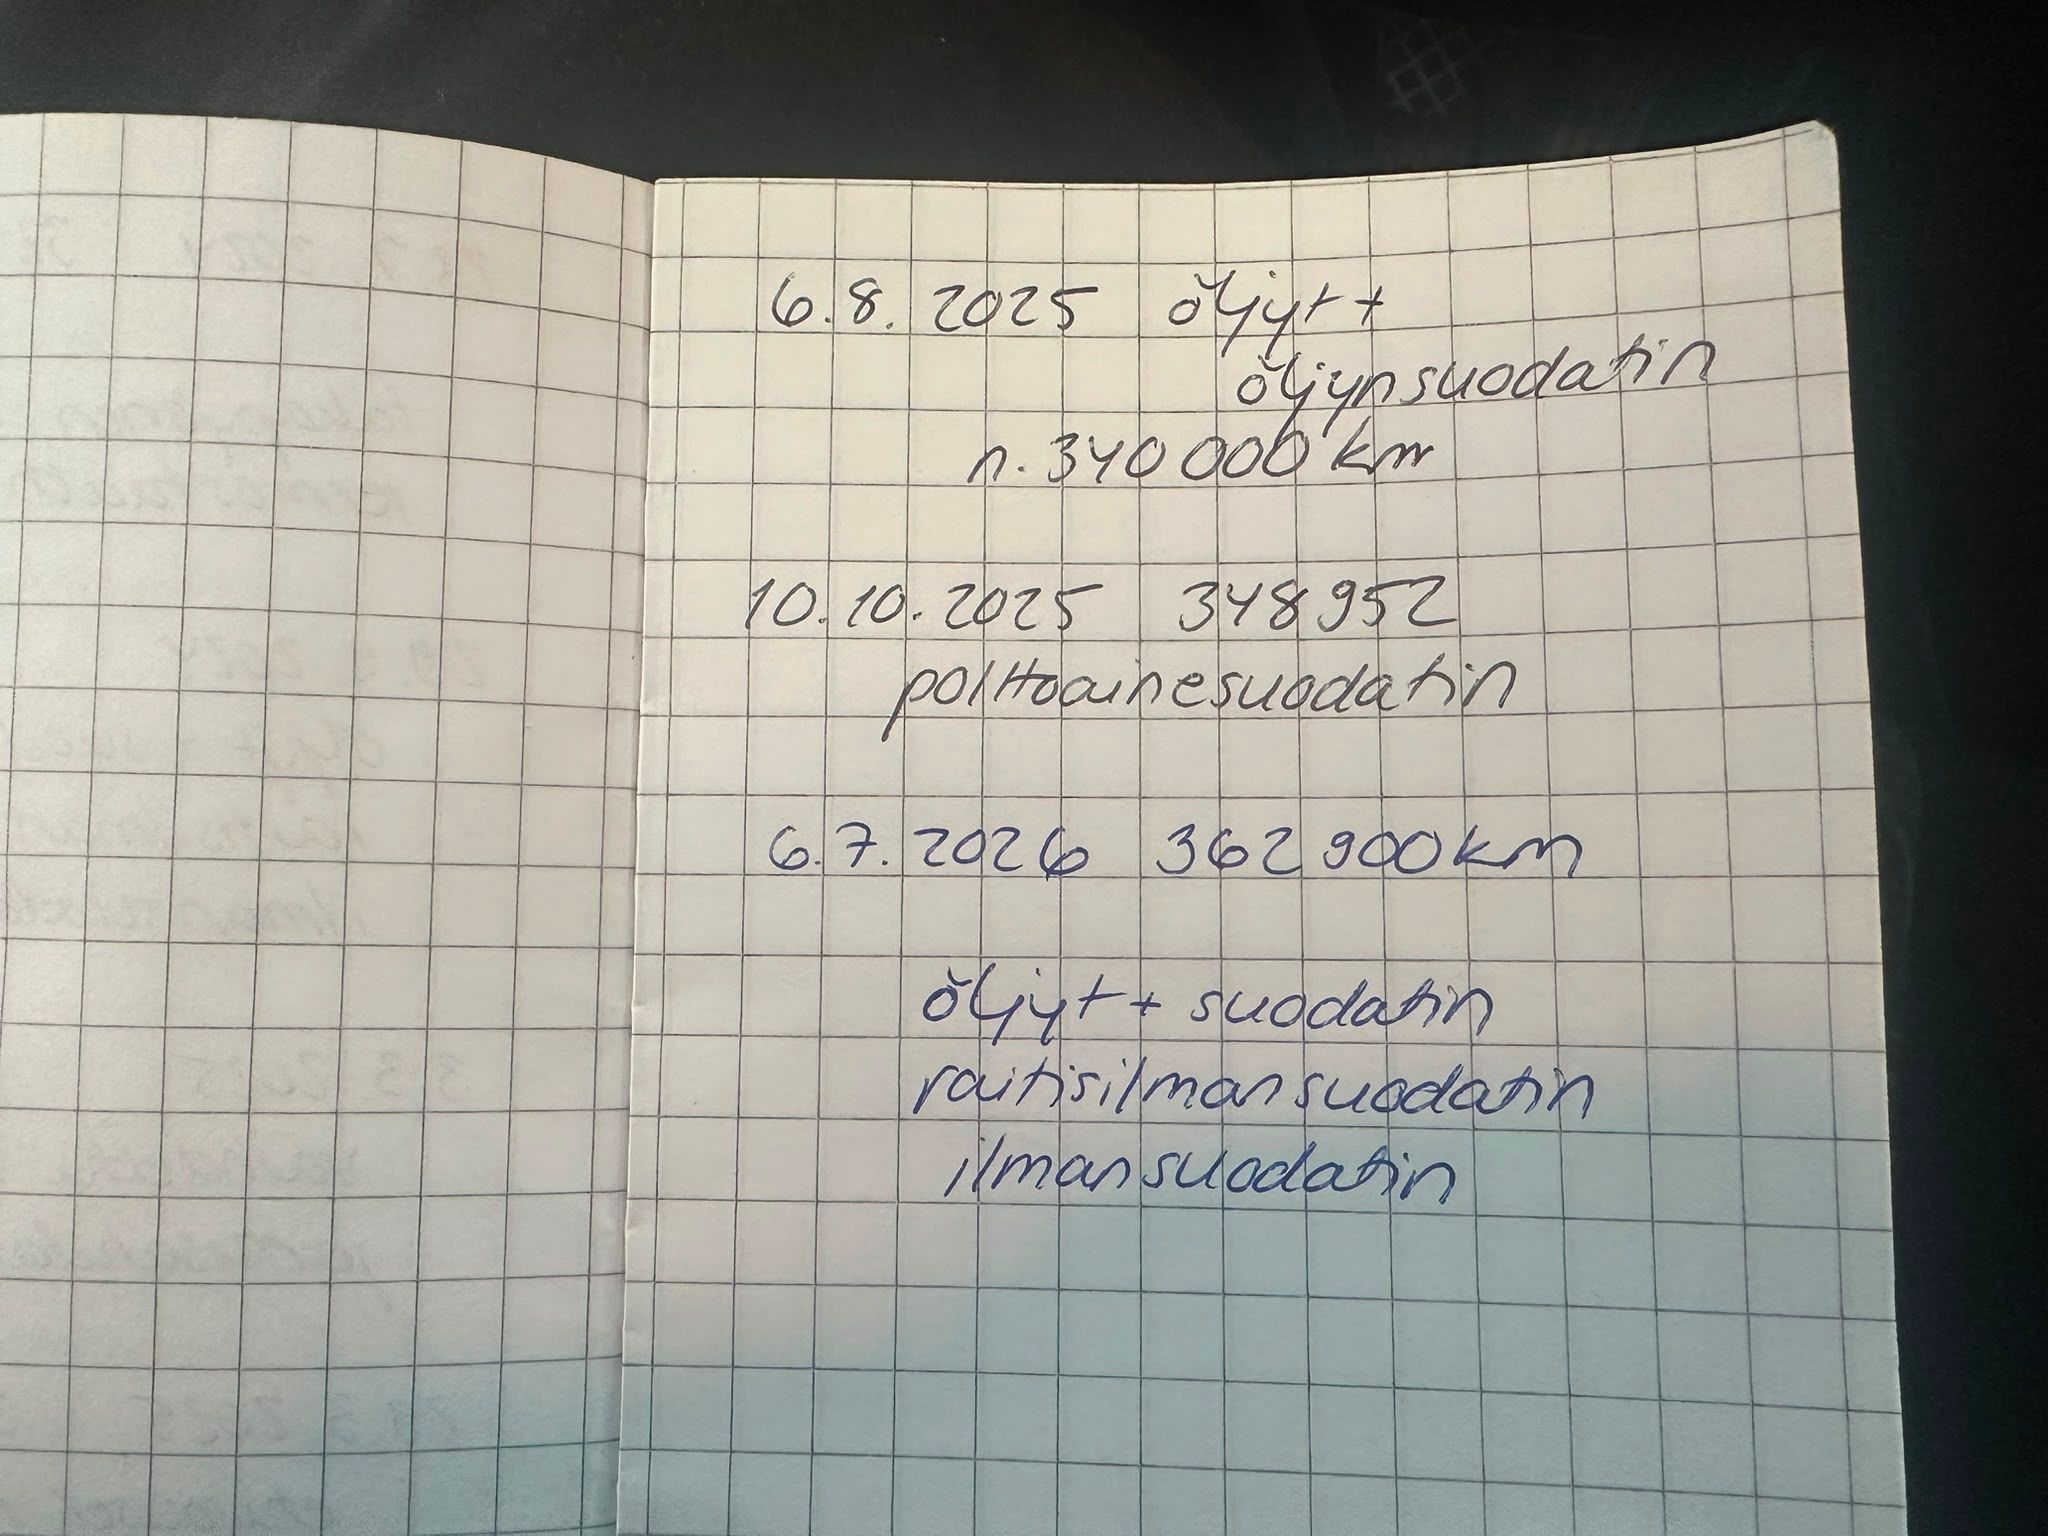 6.8. 2025 öljyt +
öljynsuodatin
n. 340 000 km
10.10.2025 348952
polttoainesuodatin
6.7.2026 362 900 km
öljyt + suodatin
raitisilmansuodatin
ilmansuodatin